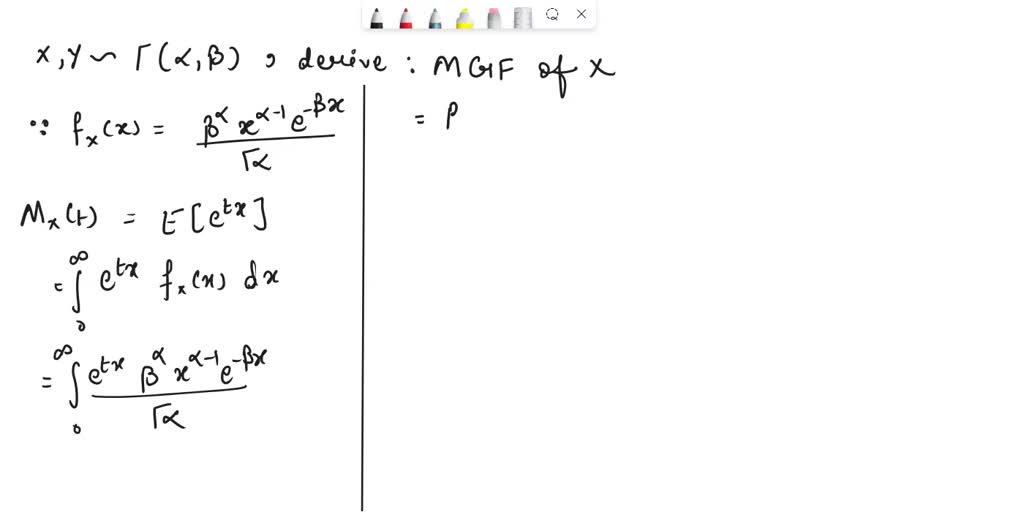 x, y ~ Γ(α, β) , derive : MGF of x
∵ fₓ(x) = β^α x^(α-1) e^(-βx) / Γα
Mₓ(t) = E[e^(tx)]
= ∫₀^∞ e^(tx) fₓ(x) dx
= ∫₀^∞ e^(tx) β^α x^(α-1) e^(-βx) / Γα
= β